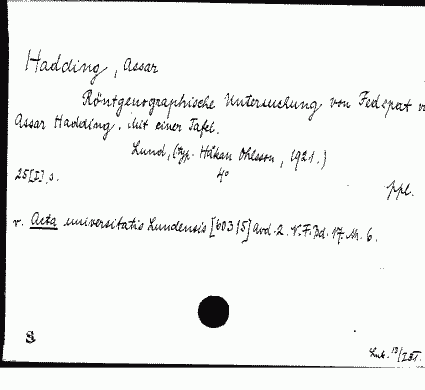 Hadding, Assar
Röntgenographische Untersuchung von Fedspat v
Assar Hadding. Mit einer Tafel.
Lund, (typ. Håkan Ohlsson, 1921.)
25[I] s. 4°
ppl.
v. Acta universitatis Lundensis [60315] Avd. 2. N.F. Bd. 17. Nr. 6.
S